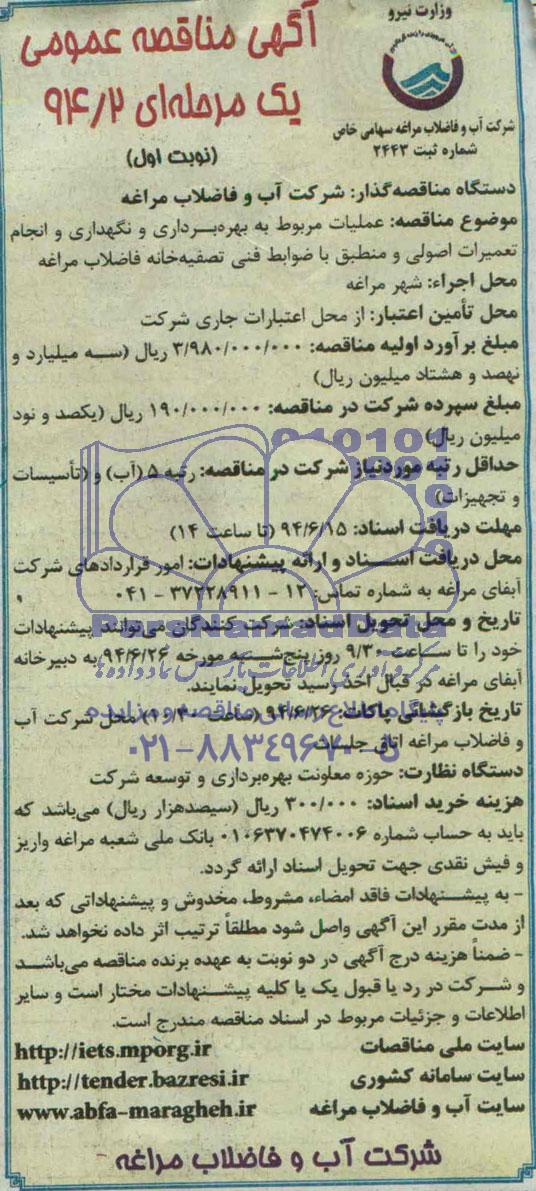 وزارت نیرو
شرکت آب و فاضلاب مراغه سهامی خاص
شماره ثبت ۲۴۴۳
آگهی مناقصه عمومی
یک مرحله‌ای ۹۴/۲
(نوبت اول)
دستگاه مناقصه‌گذار: شرکت آب و فاضلاب مراغه
موضوع مناقصه: عملیات مربوط به بهره‌برداری و نگهداری و انجام
تعمیرات اصولی و منطبق با ضوابط فنی تصفیه‌خانه فاضلاب مراغه
محل اجراء: شهر مراغه
محل تأمین اعتبار: از محل اعتبارات جاری شرکت
مبلغ برآورد اولیه مناقصه: ۳/۹۸۰/۰۰۰/۰۰۰ ریال (سه میلیارد و
نهصد و هشتاد میلیون ریال)
مبلغ سپرده شرکت در مناقصه: ۱۹۰/۰۰۰/۰۰۰ ریال (یکصد و نود
میلیون ریال)
حداقل رتبه موردنیاز شرکت در مناقصه: رتبه ۵ (آب) و (تأسیسات
و تجهیزات)
مهلت دریافت اسناد: ۹۴/۶/۱۵ (تا ساعت ۱۴)
محل دریافت اسناد و ارائه پیشنهادات: امور قراردادهای شرکت
آبفای مراغه به شماره تماس: ۱۲ - ۳۷۲۲۸۹۱۱ - ۰۴۱
تاریخ و محل تحویل اسناد: شرکت کنندگان می‌توانند پیشنهادات
خود را تا ساعت ۹/۳۰ روز پنج‌شنبه مورخه ۹۴/۶/۲۶ به دبیرخانه
آبفای مراغه در قبال اخذ رسید تحویل نمایند.
تاریخ بازگشائی پاکات: ۹۴/۶/۲۶ (ساعت ۱۰/۳۰) محل شرکت آب
و فاضلاب مراغه اتاق جلسات
دستگاه نظارت: حوزه معاونت بهره‌برداری و توسعه شرکت
هزینه خرید اسناد: ۳۰۰/۰۰۰ ریال (سیصدهزار ریال) می‌باشد که
باید به حساب شماره ۰۱۰۶۳۷۰۴۷۴۰۰۶ بانک ملی شعبه مراغه واریز
و فیش نقدی جهت تحویل اسناد ارائه گردد.
- به پیشنهادات فاقد امضاء، مشروط، مخدوش و پیشنهاداتی که بعد
از مدت مقرر این آگهی واصل شود مطلقاً ترتیب اثر داده نخواهد شد.
- ضمناً هزینه درج آگهی در دو نوبت به عهده برنده مناقصه می‌باشد
و شرکت در رد یا قبول یک یا کلیه پیشنهادات مختار است و سایر
اطلاعات و جزئیات مربوط در اسناد مناقصه مندرج است.
سایت ملی مناقصات http://iets.mporg.ir
سایت سامانه کشوری http://tender.bazresi.ir
سایت آب و فاضلاب مراغه www.abfa-maragheh.ir
شرکت آب و فاضلاب مراغه
ParsNamadData
مرکز فرآوری اطلاعات پارس نماد داده‌ها
پایگاه اطلاع رسانی مناقصه و مزایده
۰۲۱-۸۸۳۴۹۶۷۰-۵